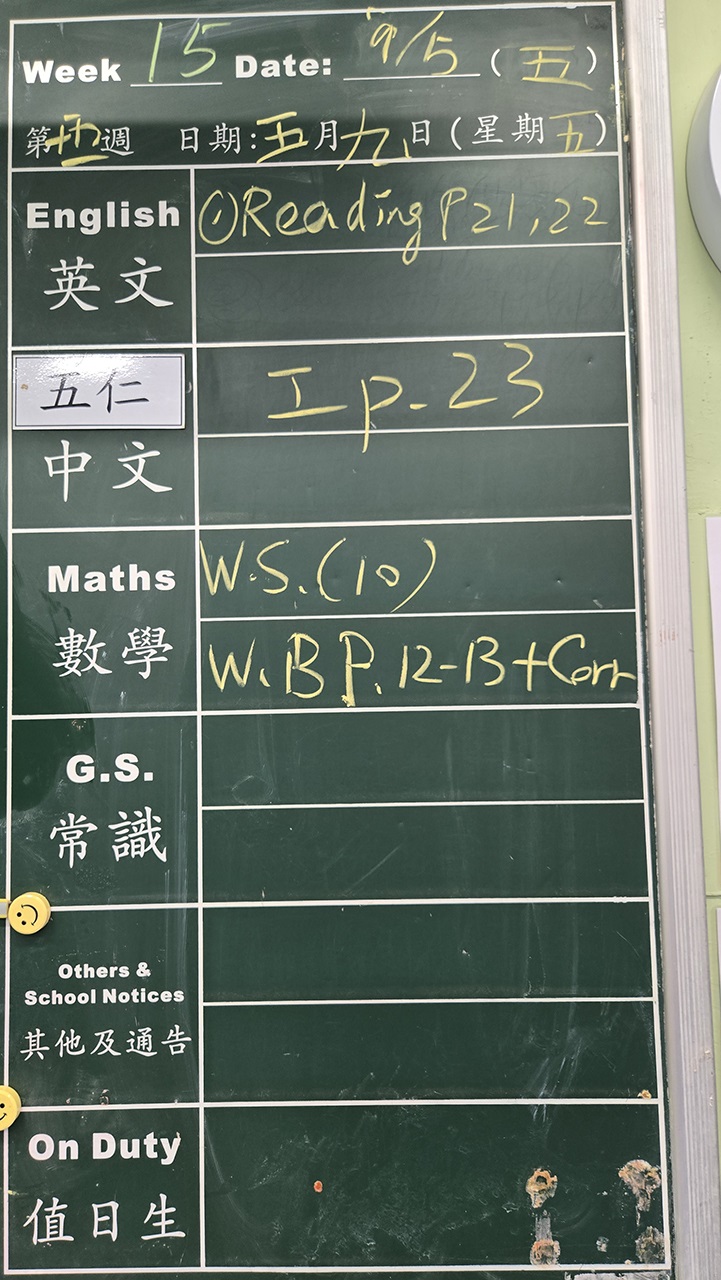 Week 15 Date: 9/5 (五)
第十五週 日期:五月九日(星期五)
English ①Reading P21,22
英文
五仁 工 p.23
中文
Maths W.S.(10)
數學 W.B P.12-13+Corr
G.S.
常識
Others &
School Notices
其他及通告
On Duty
值日生